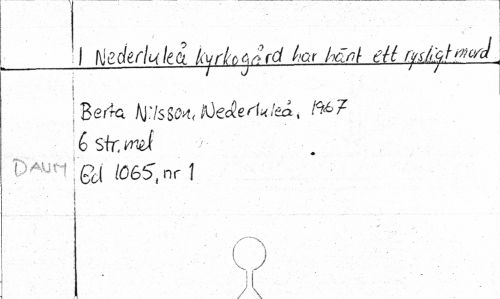 I Nederluleå kyrkogård har hänt ett rysligt mord
Berta Nilsson, Nederluleå, 1967
6 str, mel
DAUM
Gd 1065, nr 1